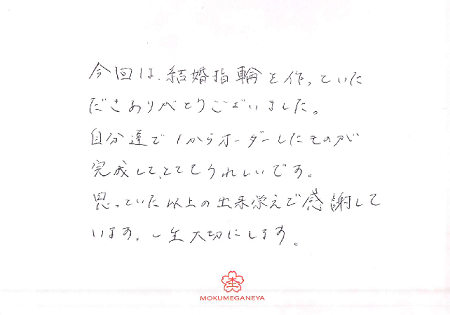 今回は、結婚指輪を作っていた
だきありがとうございました。
自分達で1からオーダーしたものが
完成して、とてもうれしいです。
思っていた以上の出来栄えで感謝して
います。一生大切にします。
MOKUMEGANEYA